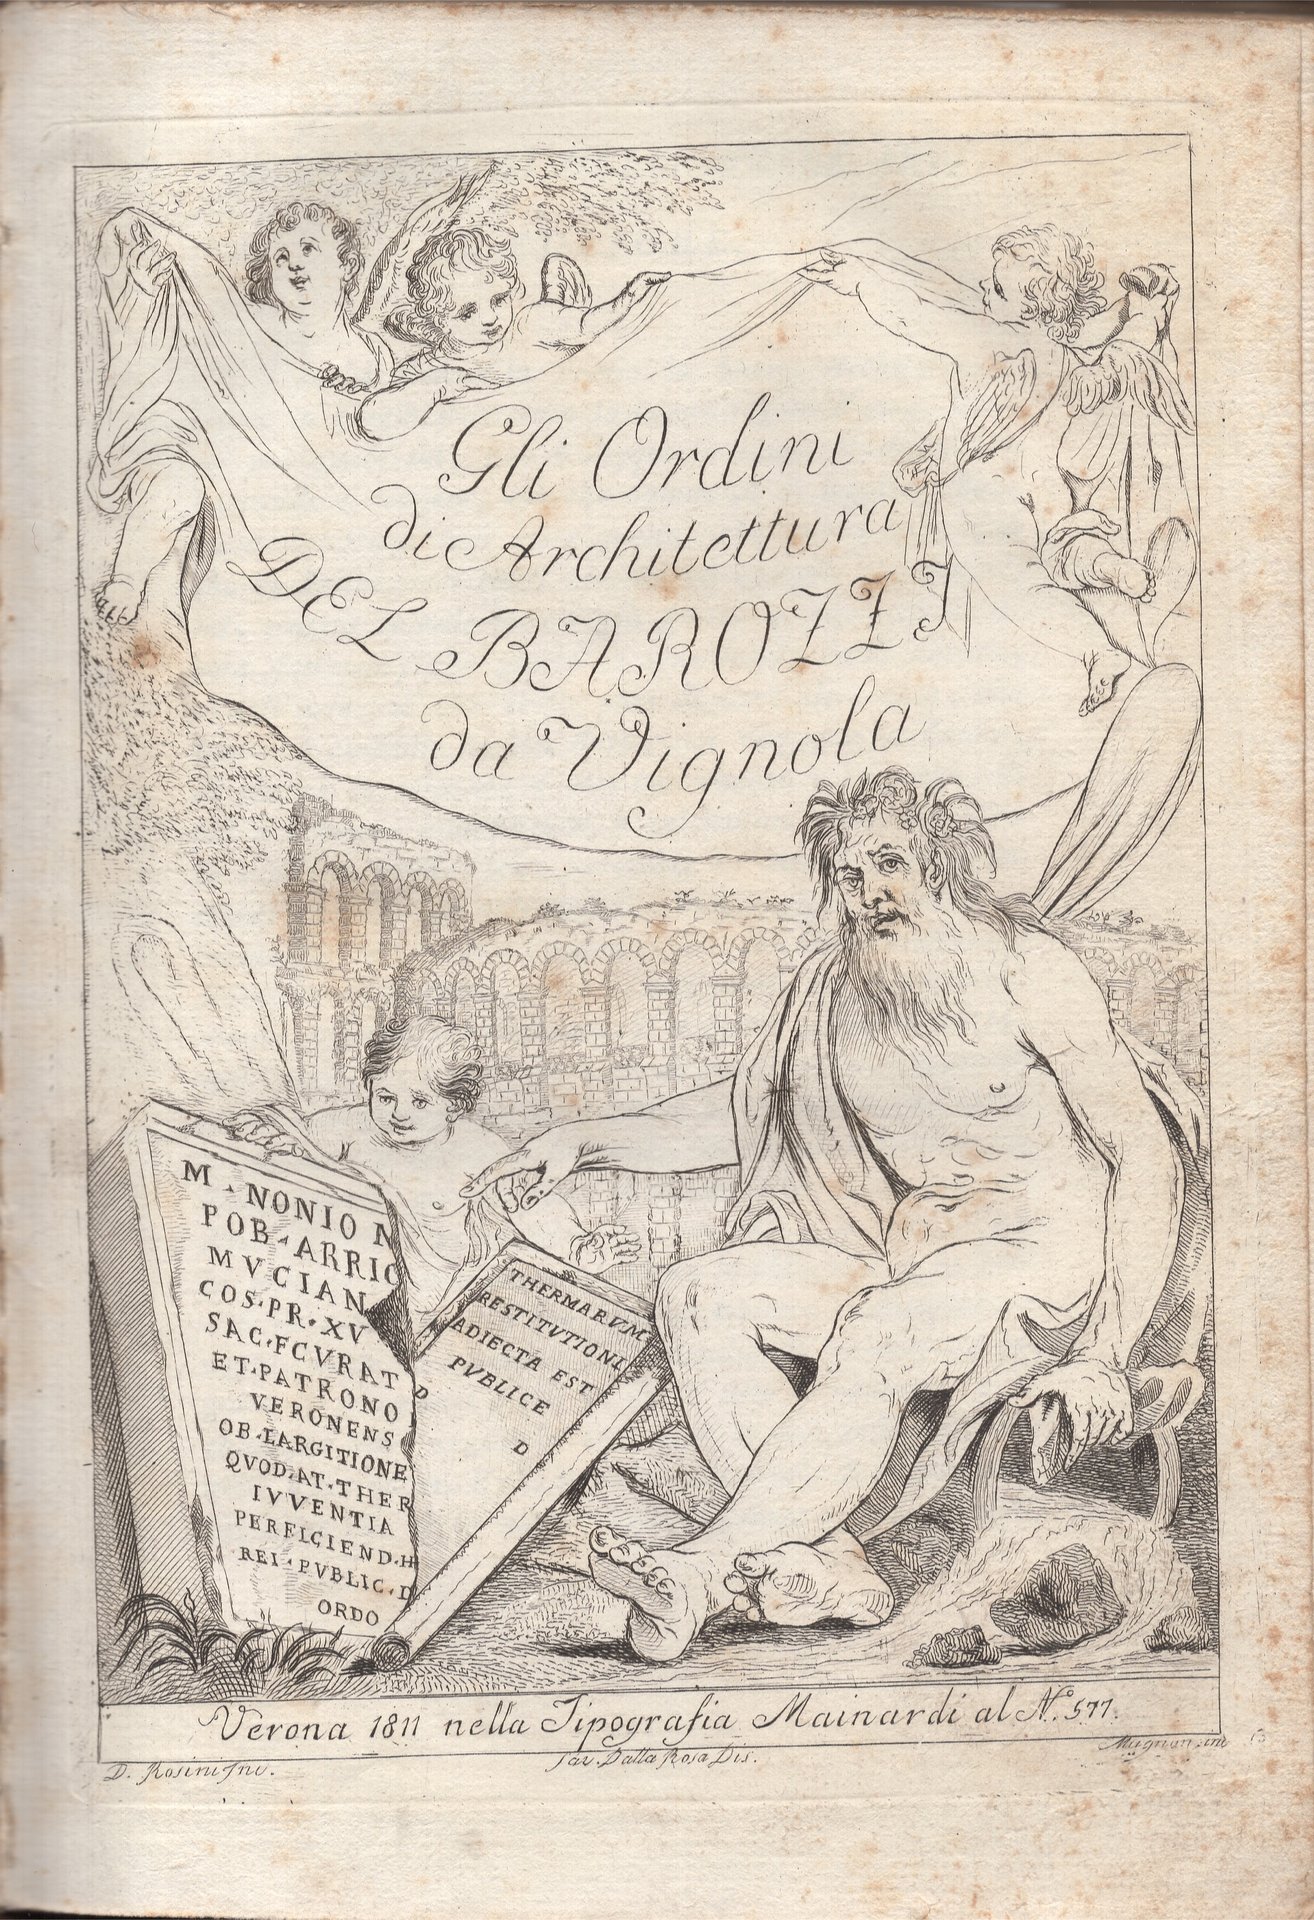 Gli Ordini
di Architettura
DEL BAROZZI
da Vignola
M. NONIO M
POB. ARRIO
MVCIAN
COS. PR. XV
SAC. FCVRAT
ET. PATRONO
VERONENS
OB. LARGITIONE
QVOD. AT. THER
IVVENTIA
PERFICIEND. H
REI. PVBLIC. D
ORDO
D
THERMARVM
RESTITVTIONI
ADIECTA EST
PVBLICE
D
Verona 1811 nella Tipografia Mainardi al N.º 577.
D. Rosini Inv.
Sav. Dalla Rosa Dis.